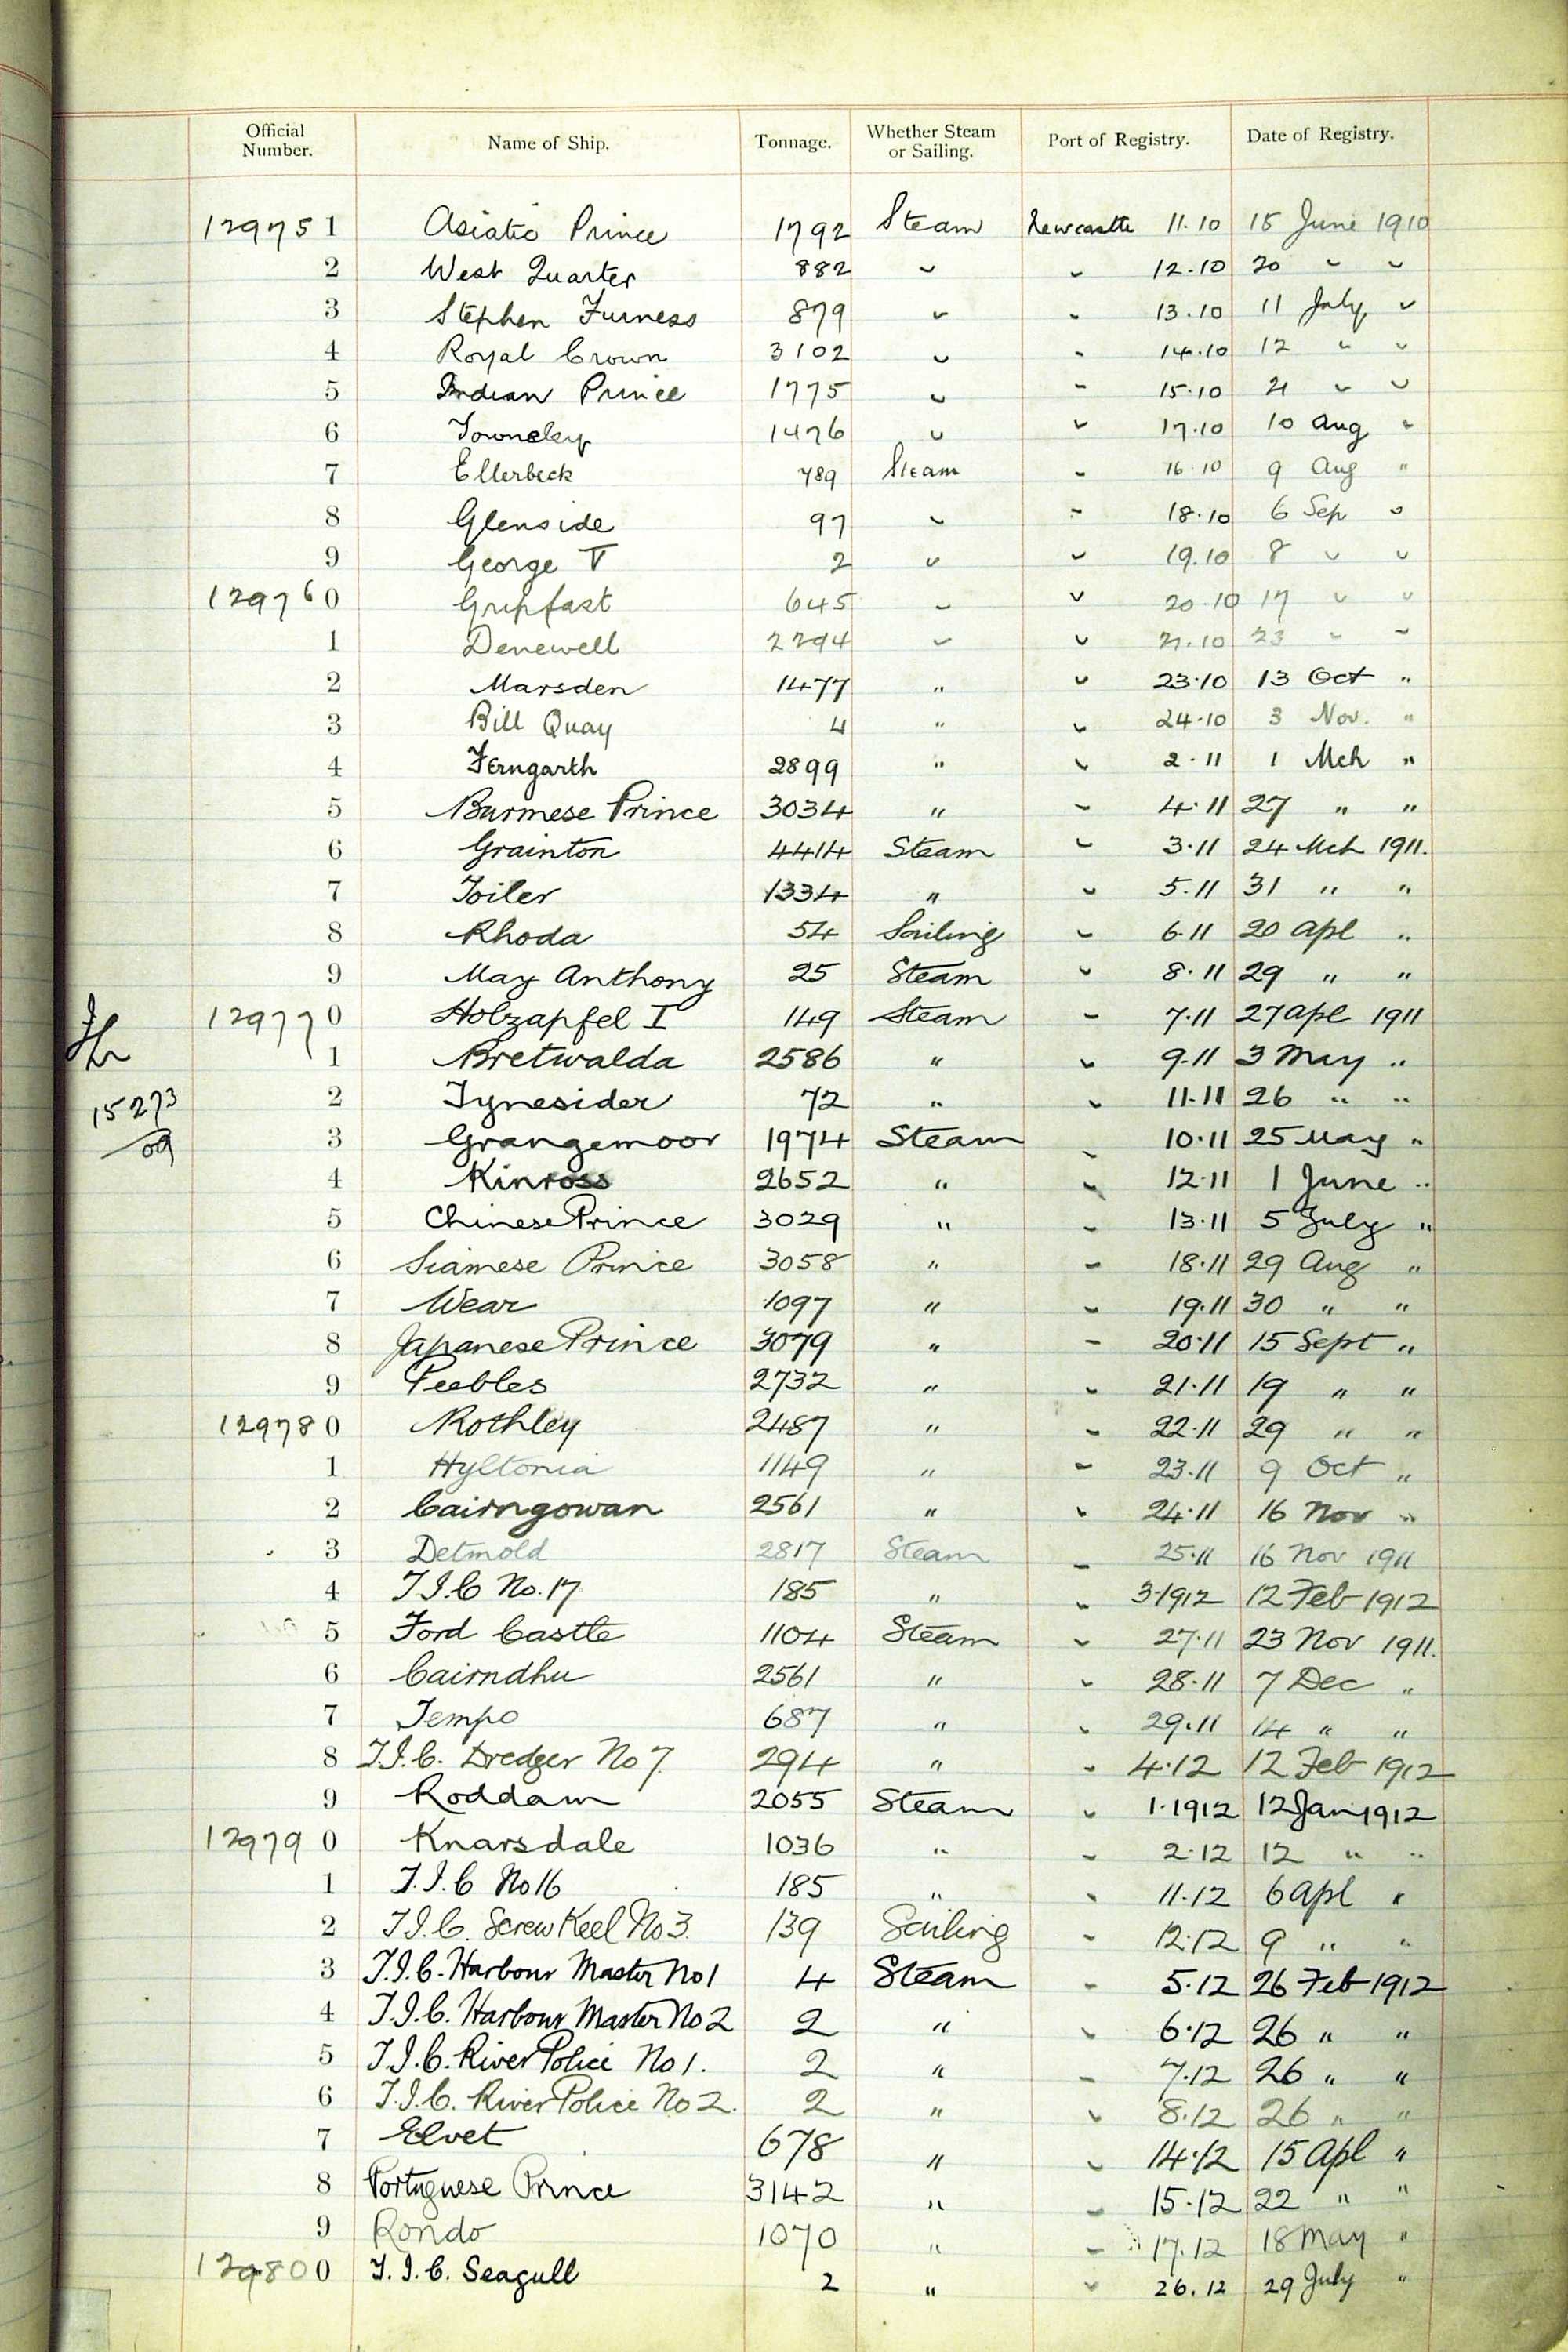 Official Number. Name of Ship. Tonnage. Whether Steam or Sailing. Port of Registry. Date of Registry.
129751 Asiatic Prince 1792 Steam Newcastle 11.10 15 June 1910
2 West Quarter 882 " " 12.10 20 " "
3 Stephen Furness 879 " " 13.10 11 July "
4 Royal Crown 3102 " " 14.10 12 " "
5 Indian Prince 1775 " " 15.10 21 " "
6 Towneley 1476 " " 17.10 10 Aug "
7 Ellerbeck 789 Steam " 16.10 9 Aug "
8 Glenside 97 " " 18.10 6 Sep "
9 George V 2 " " 19.10 8 " "
129760 Gripfast 645 " " 20.10 17 " "
1 Denewell 2294 " " 21.10 23 " "
2 Marsden 1477 " " 23.10 13 Oct "
3 Bill Quay 4 " " 24.10 3 Nov. "
4 Ferngarth 2899 " " 2.11 1 Mch "
5 Burmese Prince 3034 " " 4.11 27 " "
6 Grainton 4414 Steam " 3.11 24 Mch 1911.
7 Toiler 1334 " " 5.11 31 " "
8 Rhoda 54 Sailing " 6.11 20 Apl "
9 May Anthony 25 Steam " 8.11 29 " "
129770 Holzapfel I 149 Steam " 7.11 27 Apl 1911
1 Bretwalda 2586 " " 9.11 3 May "
15273/09
2 Tynesider 72 " " 11.11 26 " "
3 Grangemoor 1974 Steam " 10.11 25 May "
4 Kinross 2652 " " 12.11 1 June "
5 Chinese Prince 3029 " " 13.11 5 July "
6 Siamese Prince 3058 " " 18.11 29 Aug "
7 Wear 1097 " " 19.11 30 " "
8 Japanese Prince 3079 " " 20.11 15 Sept "
9 Peebles 2732 " " 21.11 19 " "
129780 Rothley 2487 " " 22.11 29 " "
1 Hyltonia 1149 " " 23.11 9 Oct "
2 Cairngowan 2561 " " 24.11 16 Nov "
3 Detmold 2817 Steam " 25.11 16 Nov 1911
4 T.I.C No. 17 185 " " 3.1912 12 Feb 1912
5 Ford Castle 1104 Steam " 27.11 23 Nov 1911.
6 Cairndhu 2561 " " 28.11 7 Dec "
7 Tempo 687 " " 29.11 14 " "
8 T.I.C. Dredger No 7. 294 " " 4.12 12 Feb 1912
9 Roddam 2055 Steam " 1.1912 12 Jan 1912
129790 Knarsdale 1036 " " 2.12 12 " "
1 T.I.C No 16 185 " " 11.12 6 Apl "
2 T.I.C. Screw Keel No 3. 139 Sailing " 12.12 9 " "
3 T.I.C. Harbour Master No 1 4 Steam " 5.12 26 Feb 1912
4 T.I.C. Harbour Master No 2 2 " " 6.12 26 " "
5 T.I.C. River Police No 1. 2 " " 7.12 26 " "
6 T.I.C. River Police No 2. 2 " " 8.12 26 " "
7 Elvet 678 " " 14.12 15 Apl "
8 Portuguese Prince 3142 " " 15.12 22 " "
9 Rondo 1070 " " 17.12 18 May "
129800 T.I.C. Seagull 2 " " 26.12 29 July "